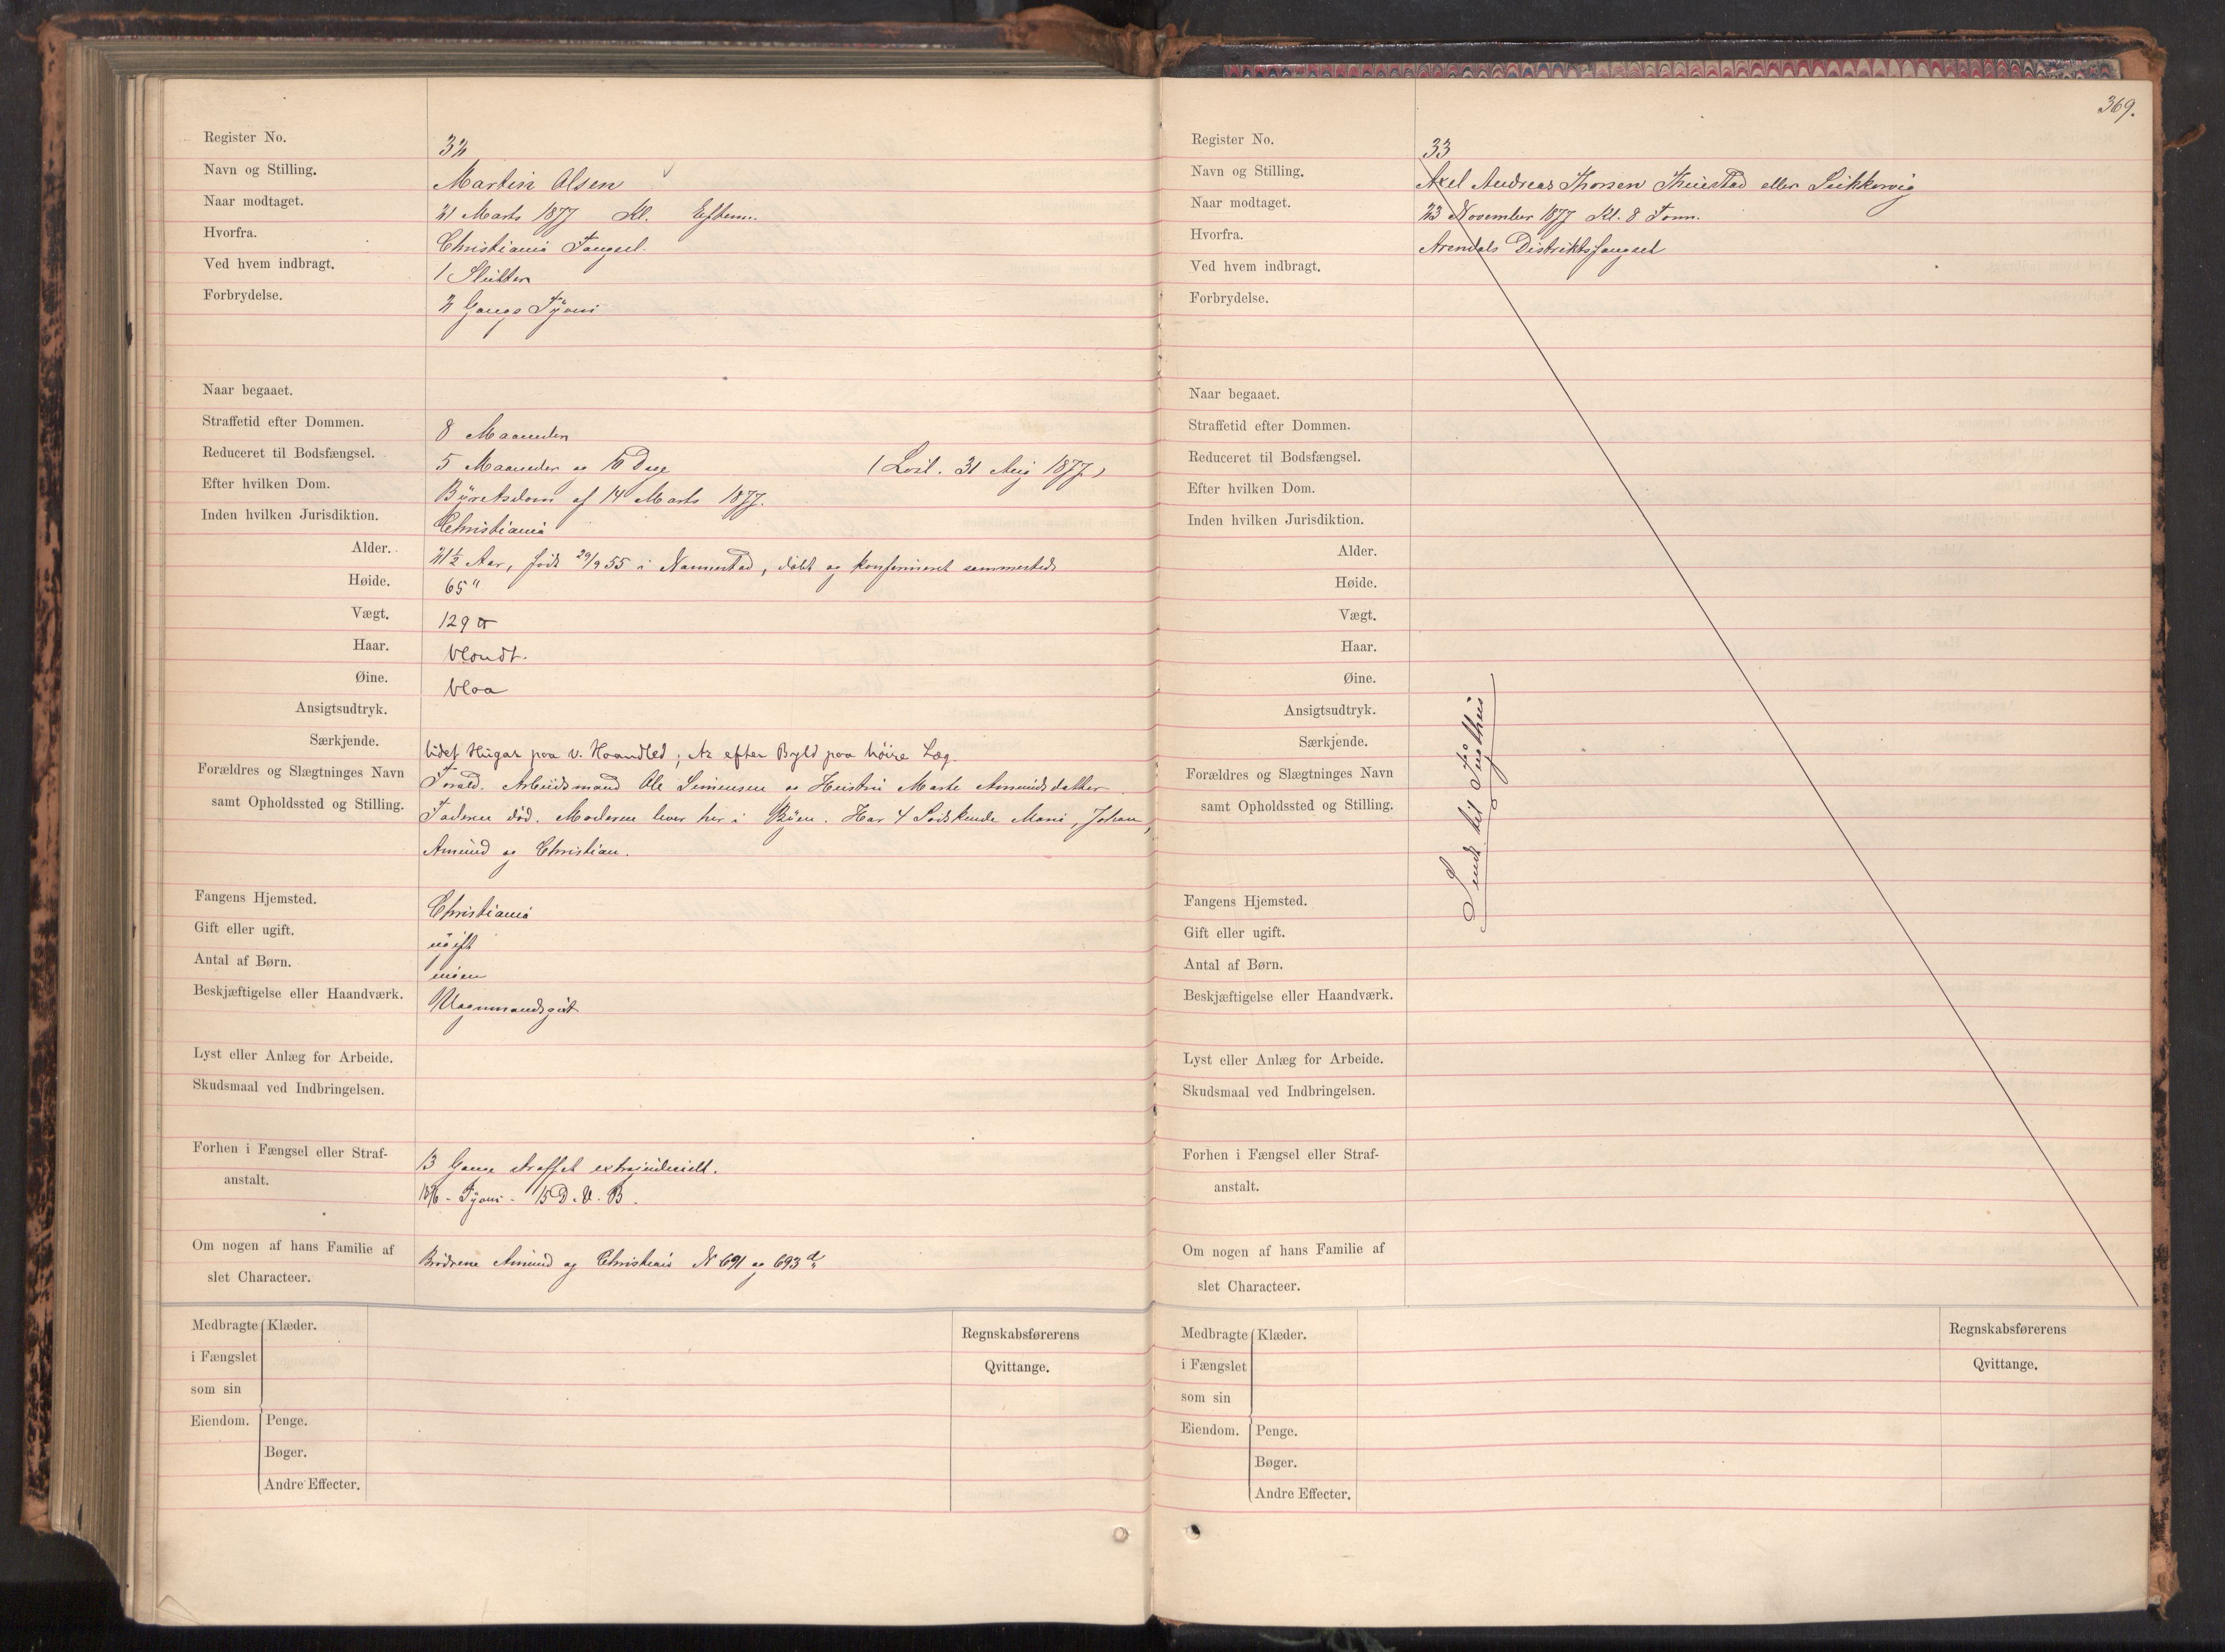 Register No. 32
Navn og Stilling. Martin Olsen
Naar modtaget. 21 Marts 1877 Kl. Efterm.
Hvorfra. Christiania Fængsel.
Ved hvem indbragt. 1 Slutter
Forbrydelse. 2 Gangs Tyveri
Naar begaaet.
Straffetid efter Dommen. 8 Maaneder
Reduceret til Bodsfængsel. 5 Maaneder og 10 Dage (Løsl. 31 Aug 1877)
Efter hvilken Dom. Byretsdom af 14 Marts 1877.
Inden hvilken Jurisdiktion. Christiania
Alder. 21½ Aar, født 29/9 55 i Nannestad, døbt og konfirmeret sammesteds
Høide. 65"
Vægt. 129 ℔
Haar. blondt.
Øine. blaa
Ansigtsudtryk.
Særkjende. lidet Hugar paa v. Haandled; Ar efter Byld paa høire Læg.
Forældres og Slægtninges Navn Foræld. Arbeidsmand Ole Simensen og Hustru Marte Amundsdatter.
samt Opholdssted og Stilling. Faderen død. Moderen lever her i Byen. Har 4 Sødskende Marie, Johan,
Amund og Christian.
Fangens Hjemsted. Christiania
Gift eller ugift. ugift
Antal af Børn. ingen
Beskjæftigelse eller Haandværk. Vognmandsgut
Lyst eller Anlæg for Arbeide.
Skudsmaal ved Indbringelsen.
Forhen i Fængsel eller Straf- 13 Gange straffet extrajudicielt.
anstalt. 1876 - Tyveri - 15 D. V. B.
Om nogen af hans Familie af Brødrene Amund og Christian N 691 og 693
slet Characteer.
Medbragte Klæder. Regnskabsførerens
i Fængslet Qvittange.
som sin
Eiendom. Penge.
Bøger.
Andre Effecter.
369.
Register No. 33
Navn og Stilling. Axel Andreas Thorsen eller
Naar modtaget. 23 November 1877 Kl. 8 Form.
Hvorfra. Arendals Distriktsfængsel
Ved hvem indbragt.
Forbrydelse.
Naar begaaet.
Straffetid efter Dommen.
Reduceret til Bodsfængsel.
Efter hvilken Dom.
Inden hvilken Jurisdiktion.
Alder.
Høide.
Vægt.
Haar.
Øine.
Ansigtsudtryk.
Særkjende.
Forældres og Slægtninges Navn
samt Opholdssted og Stilling.
Sendt til Tugthus
Fangens Hjemsted.
Gift eller ugift.
Antal af Børn.
Beskjæftigelse eller Haandværk.
Lyst eller Anlæg for Arbeide.
Skudsmaal ved Indbringelsen.
Forhen i Fængsel eller Straf-
anstalt.
Om nogen af hans Familie af
slet Characteer.
Medbragte Klæder. Regnskabsførerens
i Fængslet Qvittange.
som sin
Eiendom. Penge.
Bøger.
Andre Effecter.